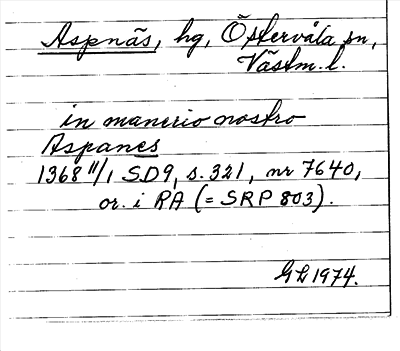 Aspnäs, hg, Östervåla sn,
Västm. l.
in manerio nostro
Aspanes
1368 11/1 SD9, s. 321, nr 7640,
or. i RA (= SRP 803).
GL 1974.